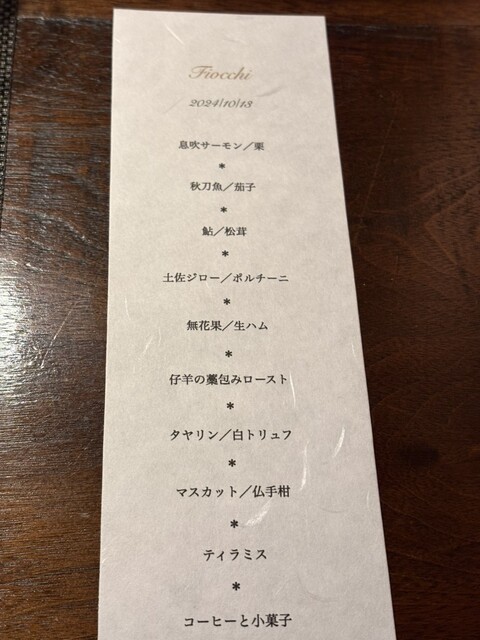 Fiocchi
2024/10/13
息吹サーモン／栗
*
秋刀魚／茄子
*
鮎／松茸
*
土佐ジロー／ポルチーニ
*
無花果／生ハム
*
仔羊の藁包みロースト
*
タヤリン／白トリュフ
*
マスカット／仏手柑
*
ティラミス
*
コーヒーと小菓子